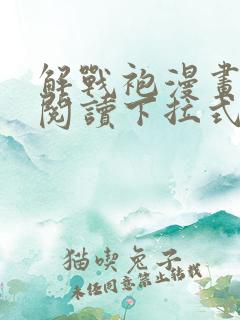 解戰袍漫畫
閱讀下拉式
猫喫兔子
未经同意禁止转载